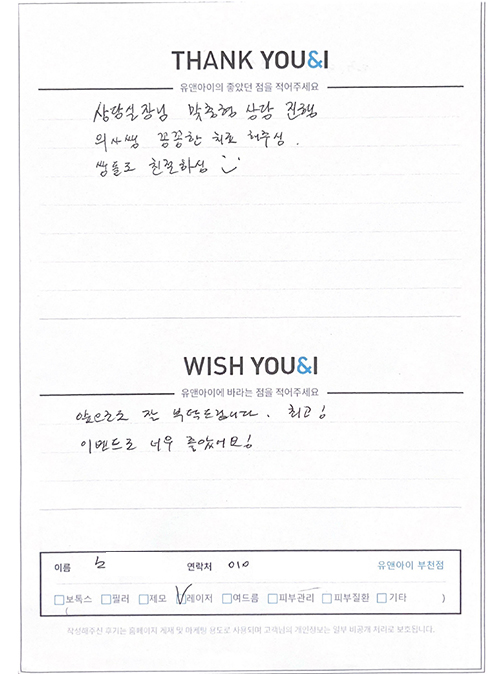 THANK YOU&I
유앤아이의 좋았던 점을 적어주세요
상담실장님 맞춤형 상담 진행
의사쌤 꼼꼼한 치료 해주심.
쌤들도 친절하심
WISH YOU&I
유앤아이에 바라는 점을 적어주세요
앞으로도 잘 부탁드립니다. 최고!
이벤트도 너무 좋았어요!
이름 연락처 010 유앤아이 부천점
보톡스 필러 제모 레이저 여드름 피부관리 피부질환 기타 )
(
작성해주신 후기는 홈페이지 게재 및 마케팅 용도로 사용되며 고객님의 개인정보는 일부 비공개 처리로 보호됩니다.